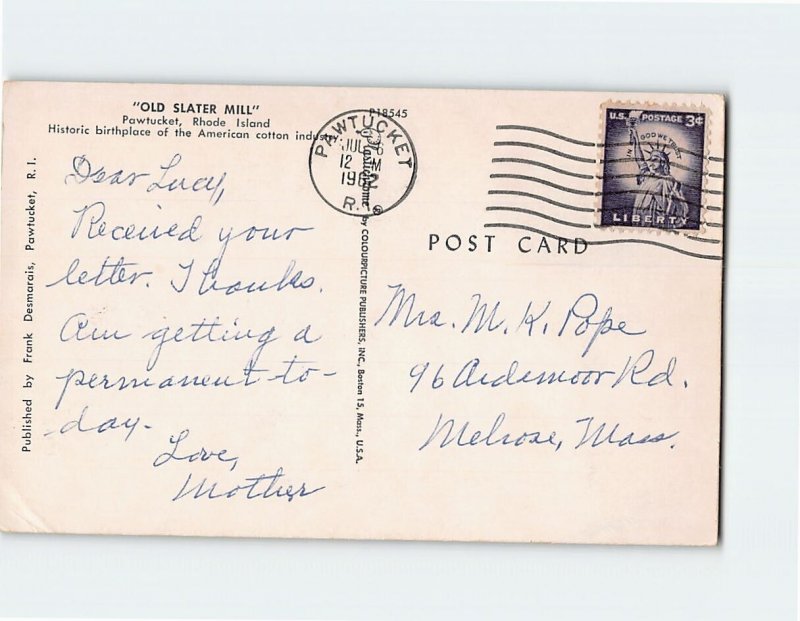 "OLD SLATER MILL"
Pawtucket, Rhode Island
Historic birthplace of the American cotton industry
P18545
Published by Frank Desmarais, Pawtucket, R. I.
Dear Lucy,
Received your
letter. Thanks.
Am getting a
permanent to-
day.
Love,
Mother
Plastichrome ® by COLOURPICTURE PUBLISHERS, INC., Boston 15, Mass., U.S.A.
PAWTUCKET
JUL
12 M
1962
R.I.
U.S. POSTAGE 3¢
IN GOD WE TRUST
LIBERTY
POST CARD
Mrs. M. K. Pope
96 Ardsmoor Rd.
Melrose, Mass.